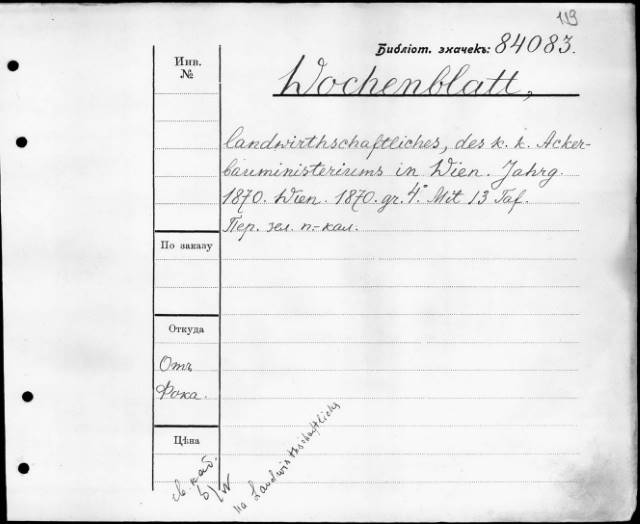 119
Библіот. значекъ: 84083.
Инв.
№
Wochenblatt,
landwirthschaftliches, des k. k. Acker-
bauministeriums in Wien. Jahrg.
1870. Wien. 1870. gr. 4° Mit 13 Taf.
Пер. зел. п.-кал.
По заказу
Откуда
Отъ
Фока.
Цѣна
св. каб.
б/W
на Landwirthschaftliches